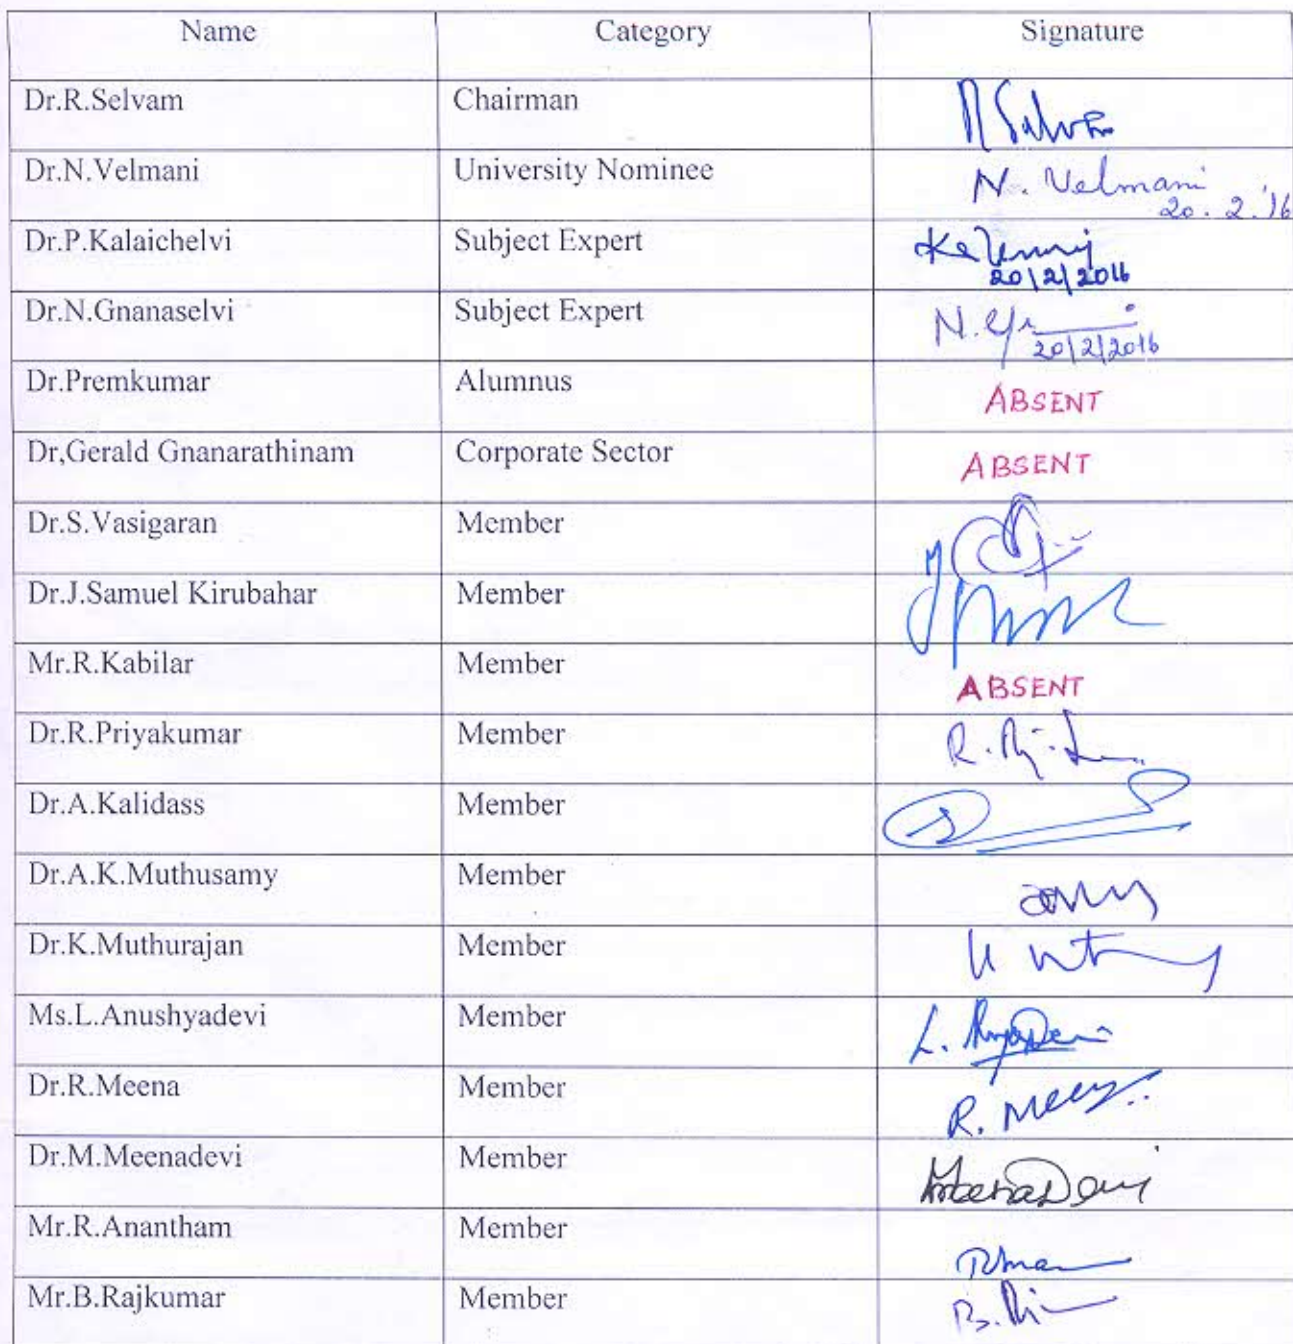 Name Category Signature
Dr.R.Selvam Chairman
Dr.N.Velmani University Nominee N. Velmani
20.2.'16
Dr.P.Kalaichelvi Subject Expert
20/2/2016
Dr.N.Gnanaselvi Subject Expert
20/2/2016
Dr.Premkumar Alumnus ABSENT
Dr,Gerald Gnanarathinam Corporate Sector ABSENT
Dr.S.Vasigaran Member
Dr.J.Samuel Kirubahar Member
Mr.R.Kabilar Member ABSENT
Dr.R.Priyakumar Member
Dr.A.Kalidass Member
Dr.A.K.Muthusamy Member
Dr.K.Muthurajan Member
Ms.L.Anushyadevi Member
Dr.R.Meena Member
Dr.M.Meenadevi Member MeenaDevi
Mr.R.Anantham Member
Mr.B.Rajkumar Member